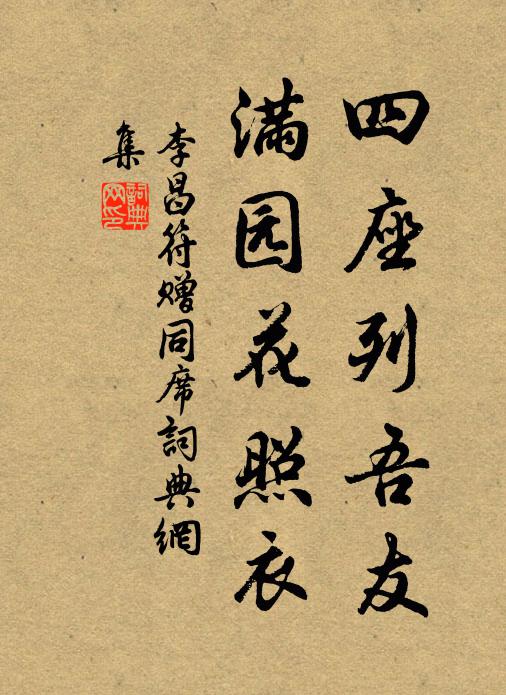 四座列吾友
满园花照衣
李昌符赠同席詞典網
集
詞典网印